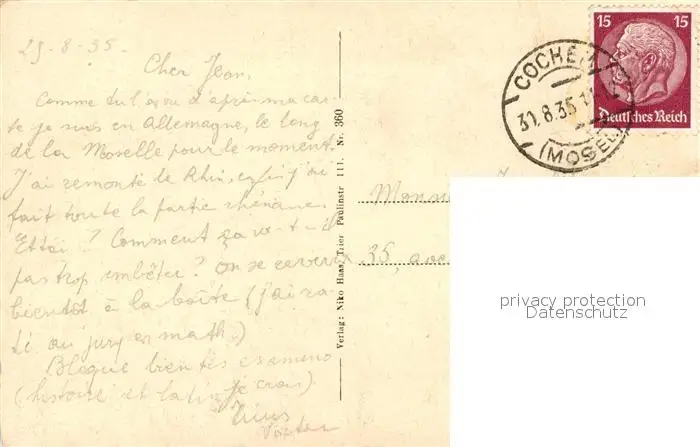 29-8-35-
Cher Jean,
Comme tu l'as vu d'après ma car-
te je suis en Allemagne, le long
de la Moselle pour le moment.
J'ai remonté le Rhin, j'ai
fait toute la partie rhénane.
Et toi ? Comment ça va-t-il
pas trop embêté ? On se reverra
bientôt à la boîte (j'ai ra-
té au jury en math.)
Bloque bien tes examens
(histoire et latin je crois)
Verlag: Niko Haas, Trier Paulinstr 111. Nr. 360
COCHEM
31.8.35
(MOSEL)
15 15
Deutsches Reich
Monsieur
35, ave
privacy protection
Datenschutz